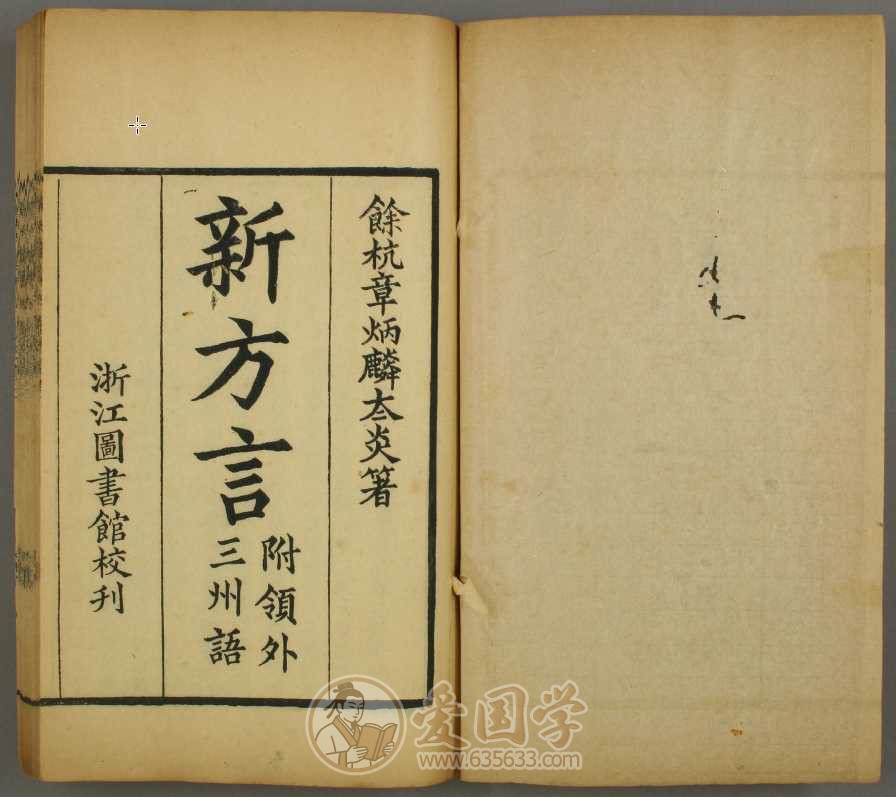 餘杭章炳麟太炎箸
新方言
附領外
三州語
浙江圖書館校刊
爱国学
www.635633.com